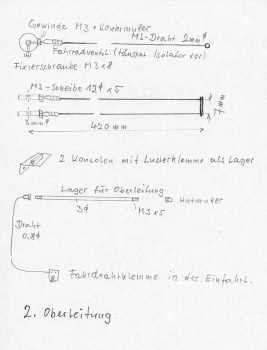 Gewinde M3 + Kontermutter
MS-Draht 2mm ϕ
Fahrradventil (täuscht Isolator vor)
Fixierschraube M3x8
MS-Scheibe 12ϕ x 5
7mm
3mmϕ
420 mm
2 Konsolen mit Lusterklemme als Lager
Lager für Oberleitung
3ϕ
M3x5
Hutmutter
Draht
0,8ϕ
Fahrdrahtklemme in der Einfahrt.
2. Oberleitung.